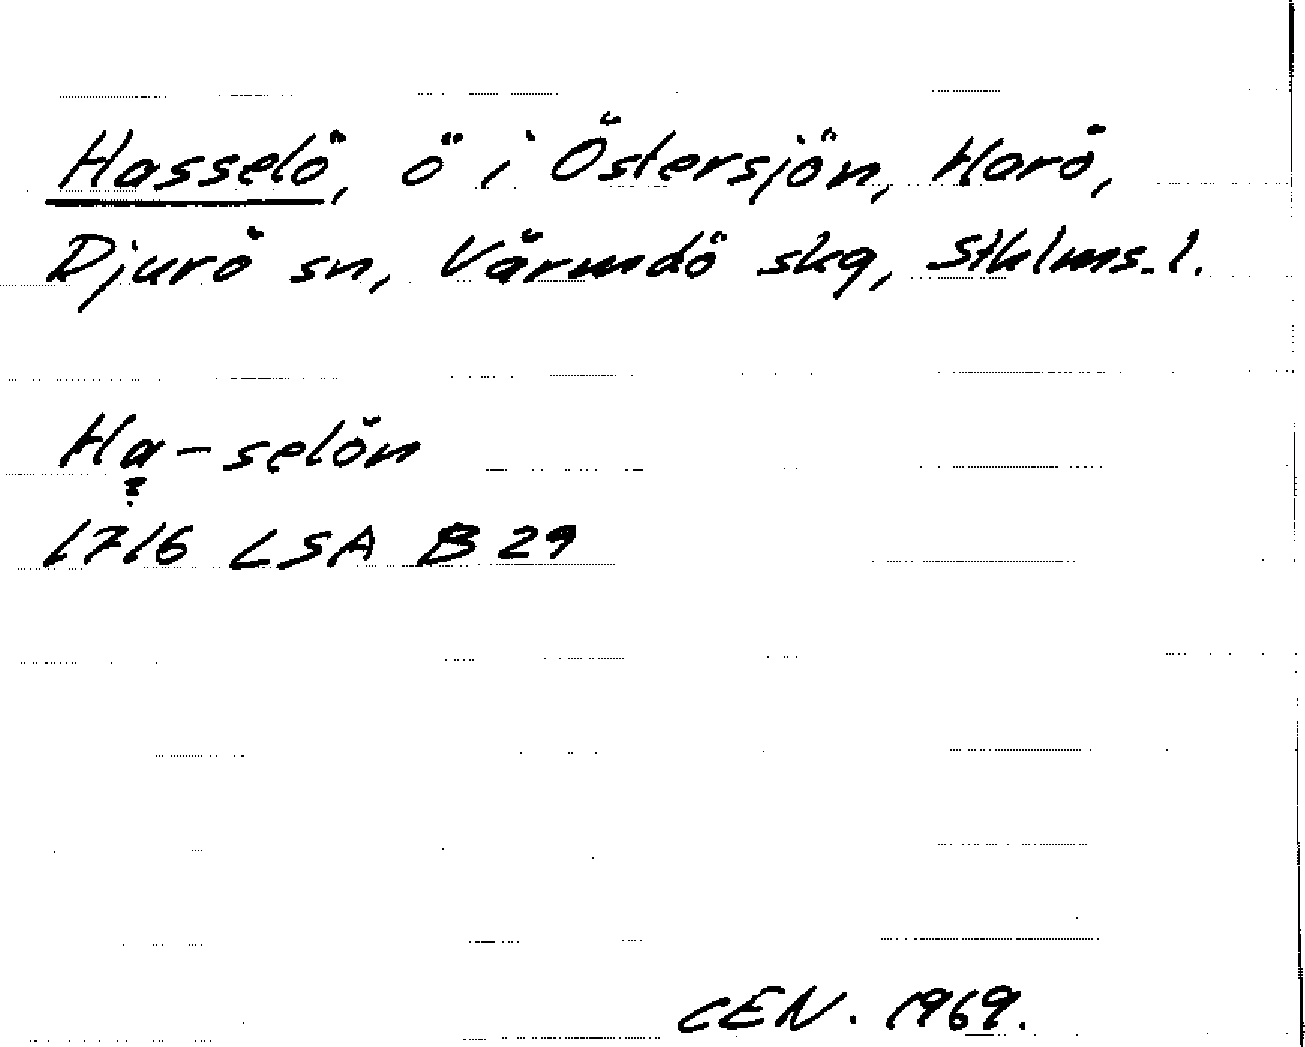 Hasselö, ö i Östersjön, Harö,
Djurö sn, Värmdö skg, Sthlms. l.
Ha-selön
?
1716 LSA B 29
CEN. 1969.